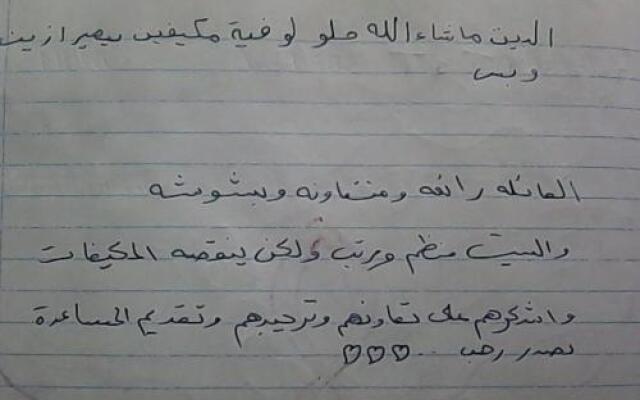 البيت ماشاء الله حلو لو فية مكيفين بيصير ازين
وبس
العائله رائعه ومتعاونه وبشوشه
والبيت منظم ومرتب ولكن ينقصه المكيفات
واشكرهم على تعاونهم وترحيبهم وتقديم المساعدة
بصدر رحب ... ♡♡♡